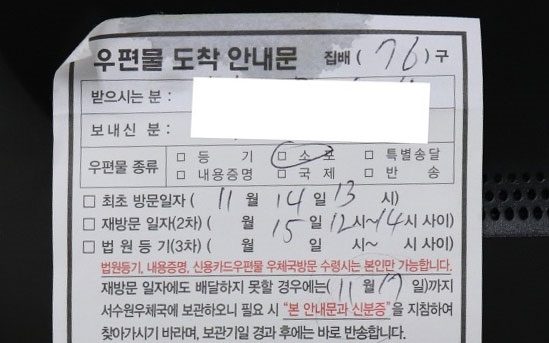 우편물 도착 안내문 집배 ( 76 ) 구
받으시는 분 :
보내신 분 :
우편물 종류 □ 등 기 □ 소 포 □ 특별송달
□ 내용증명 □ 국 제 □ 반 송
□ 최초 방문일자 ( 11 월 14 일 13 시 )
□ 재방문 일자(2차) ( 월 15 일 12 시~ 14 시 사이)
□ 법 원 등 기 (3차) ( 월 일 시~ 시 사이)
법원등기, 내용증명, 신용카드우편물 우체국방문 수령시는 본인만 가능합니다.
재방문 일자에도 배달하지 못할 경우에는( 11 월 17 일)까지
서수원우체국에 보관하오니 필요 시 “본 안내문과 신분증”을 지참하여
찾아가시기 바라며, 보관기일 경과 후에는 바로 반송합니다.